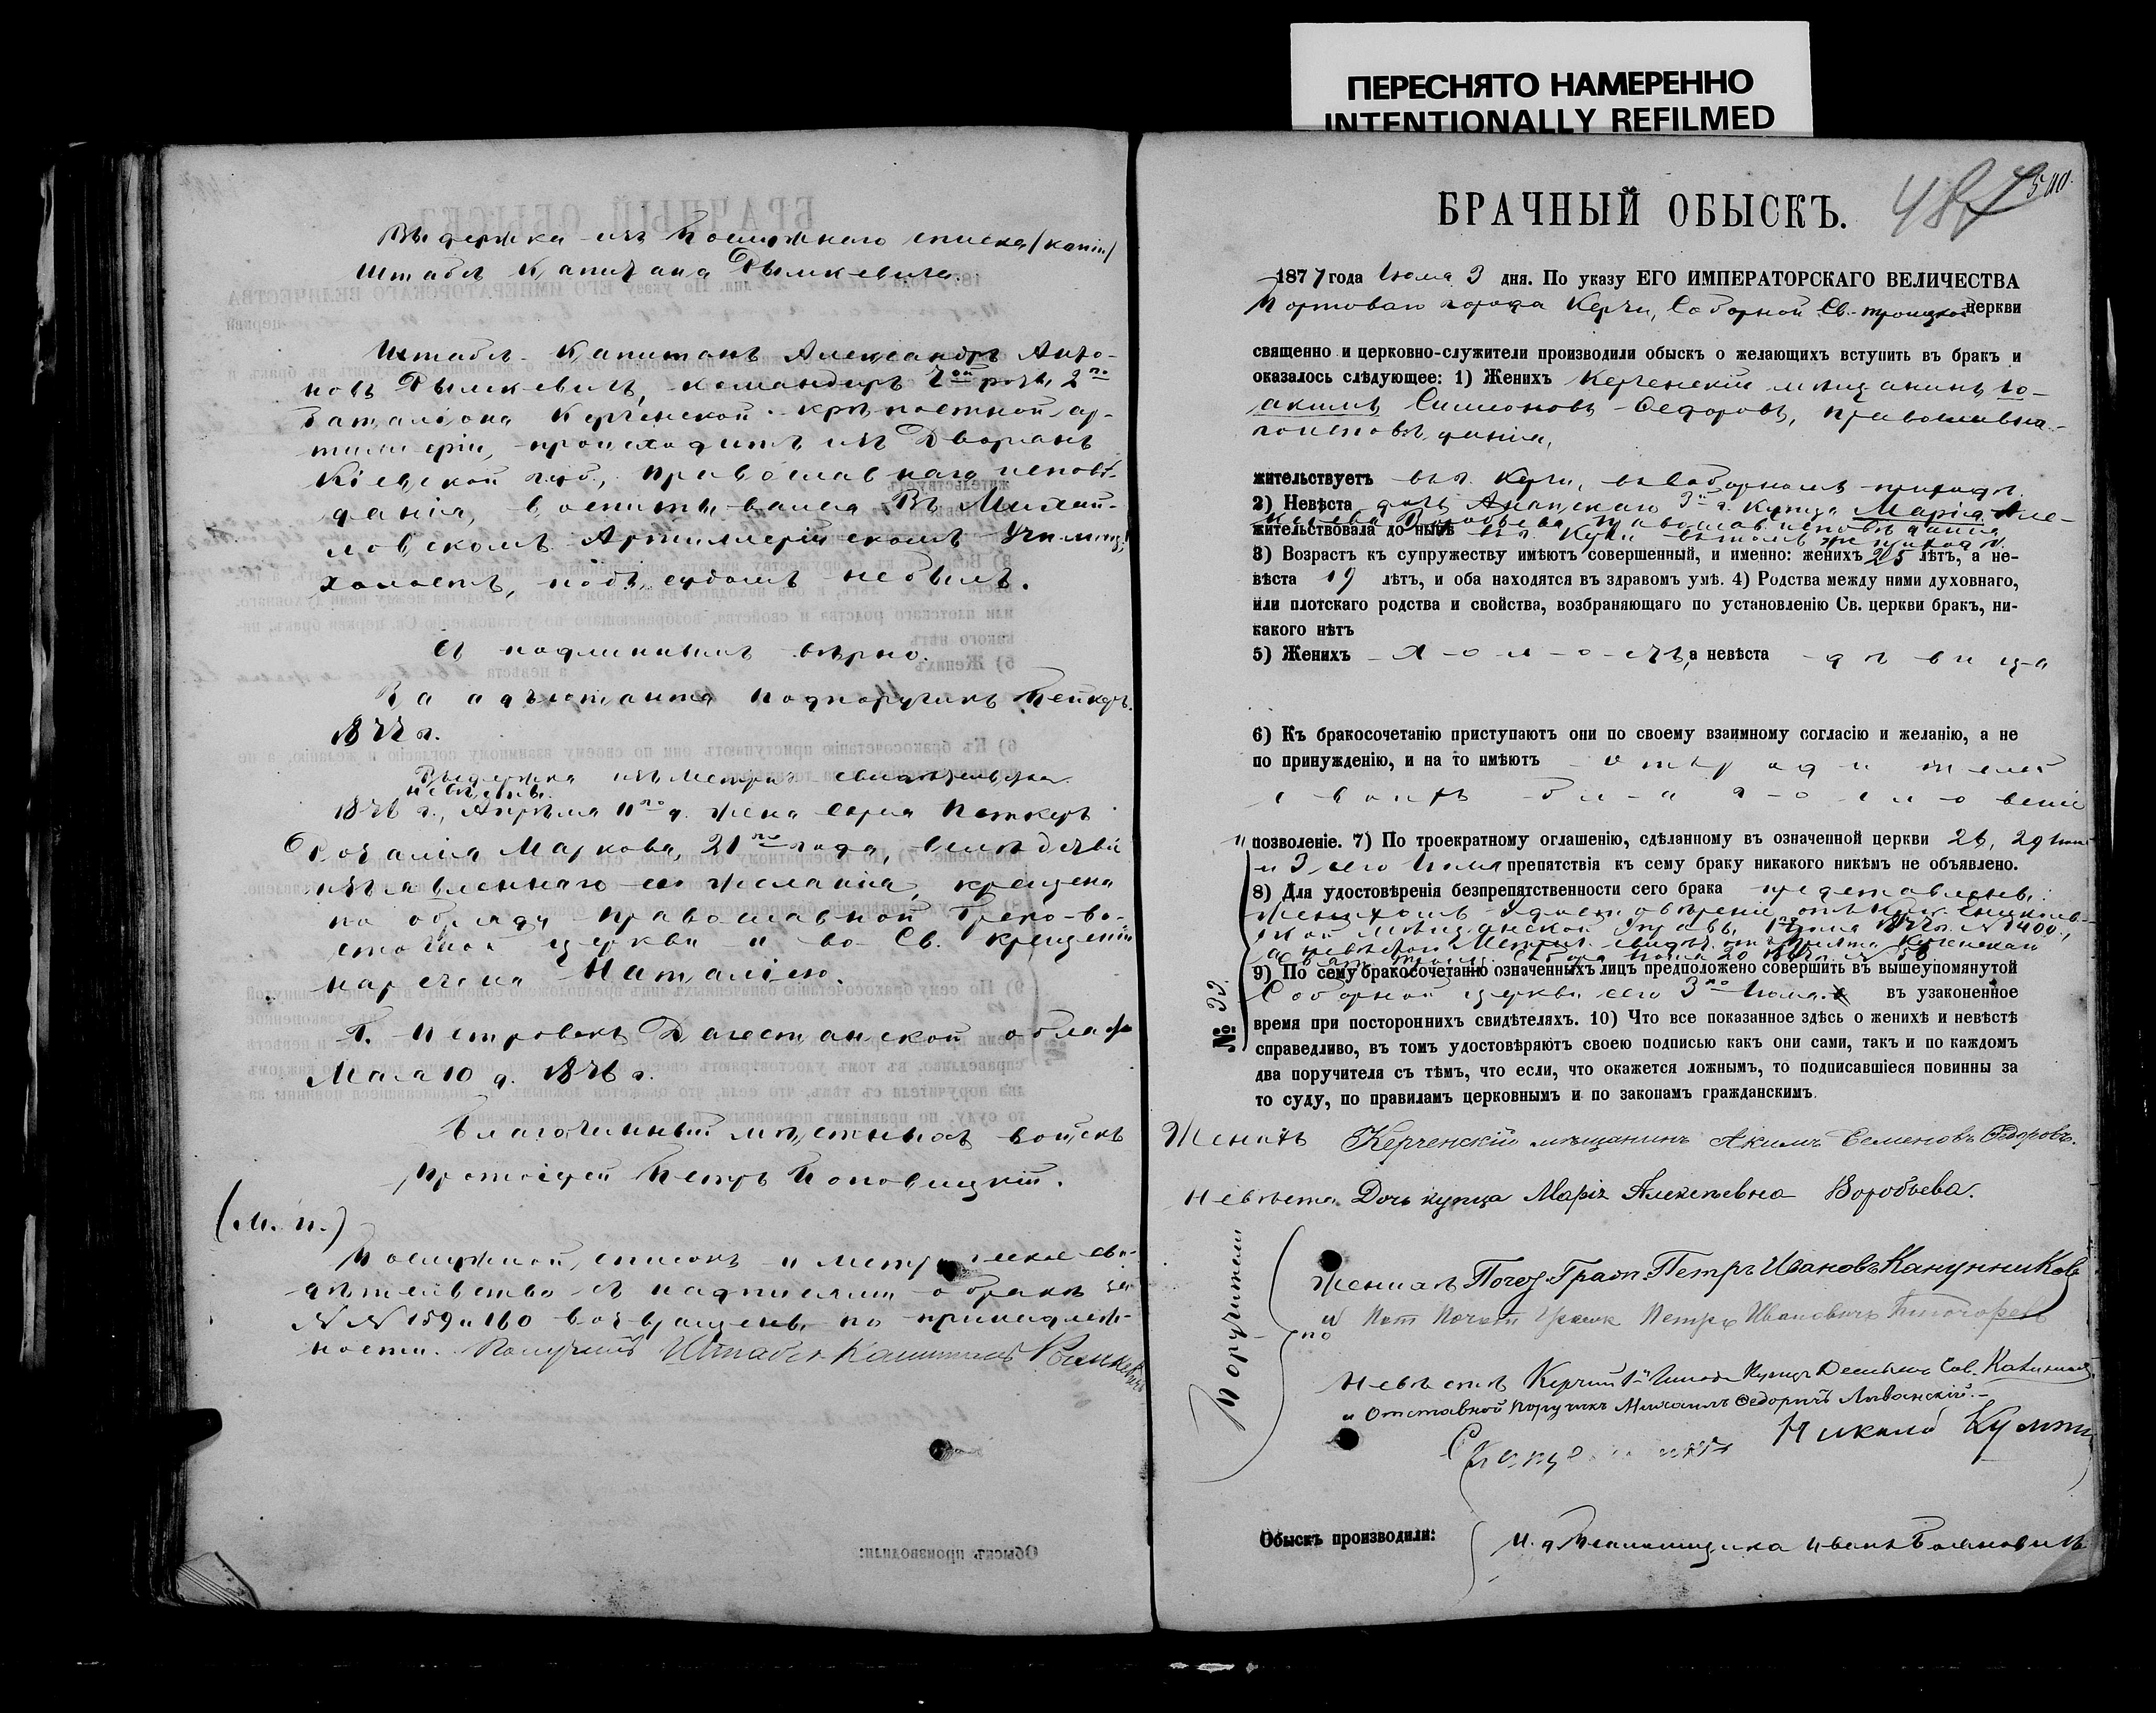 ПЕРЕСНЯТО НАМЕРЕННО
INTENTIONALLY REFILMED
Выдержка изъ Послужнаго списка /копіи/
Штабсъ Капитана Рымкевича.
Штабсъ-Капитанъ Александръ Анто-
новъ Рымкевичъ, командиръ роты, 2го
баталіона Керченской крѣпостной ар-
тиллеріи, происходитъ изъ Дворянъ
Кіевской губ., православнаго исповѣ-
данія, воспитывался въ Михай-
ловскомъ Артиллерійскомъ Училищѣ,
холостъ, подъ судомъ не былъ.
Съ подлиннымъ вѣрно.
За адъютанта Подпоручикъ
1877 г.
Выдержка изъ метрич. свидѣтельства
невѣсты.
1876 г., Апрѣля 11го д. жена
Розалія Маркова, 21го года, вслѣдствіе
изъявленнаго ею желанія, крещена
по обряду Православной Греко-во-
сточной церкви и во Св. крещеніи
наречена Наталіею.
Г. Петровскъ Дагестанской области
Мая 10 д. 1876 г.
Благочинный мѣстныхъ войскъ
Протоіерей Петръ Поповицкій.
(М. П.)
Послужной списокъ и метрическое сви-
дѣтельство съ надписями о бракѣ за
№№ 159 и 160 возвращены по принадлеж-
ности. Получилъ Штабсъ-Капитанъ Рымкевичъ
БРАЧНЫЙ ОБЫСКЪ.
487
500
1877 года Іюля 3 дня. По указу ЕГО ИМПЕРАТОРСКАГО ВЕЛИЧЕСТВА
Портоваго города Керчи, Соборной Св.-Троицкой церкви
священно и церковно-служители производили обыскъ о желающихъ вступить въ бракъ и
оказалось слѣдующее: 1) Женихъ Керченскій мѣщанинъ Іо-
акимъ Симеоновъ Федоровъ, православна-
го исповѣданія,
жительствуетъ въ г. Керчи, въ Соборномъ приходѣ.
2) Невѣста дочь Анапскаго 3й г. купца Марія Але-
ксѣева Воробьева, православ. исповѣданія
жительствовала до нынѣ въ г. Керчи въ томъ же приходѣ.
3) Возрастъ къ супружеству имѣютъ совершенный, и именно: женихъ 25 лѣтъ, а не-
вѣста 19 лѣтъ, и оба находятся въ здравомъ умѣ. 4) Родства между ними духовнаго,
или плотскаго родства и свойства, возбраняющаго по установленію Св. церкви бракъ, ни-
какого нѣтъ
5) Женихъ холостъ, а невѣста дѣвица
6) Къ бракосочетанію приступаютъ они по своему взаимному согласію и желанію, а не
по принужденію, и на то имѣютъ отъ родителей
своихъ благословеніе
и позволеніе. 7) По троекратному оглашенію, сдѣланному въ означенной церкви 26, 29 Іюня
и 3 сего Іюля препятствія къ сему браку никакого никѣмъ не объявлено.
8) Для удостовѣренія безпрепятственности сего брака представлены:
женихомъ Удостовѣреніе отъ Керч-Еникольс-
кой Мѣщанской Управы, 1877 г. № 1400,
а невѣстою Метрич. свидѣт. Керченскаго
9) По сему бракосочетанію означенныхъ лицъ предположено совершить въ вышеупомянутой
Соборной церкви сего 3го Іюля въ узаконенное
№ 33.
время при постороннихъ свидѣтеляхъ. 10) Что все показанное здѣсь о женихѣ и невѣстѣ
справедливо, въ томъ удостовѣряютъ своею подписью какъ они сами, такъ и по каждомъ
два поручителя съ тѣмъ, что если, что окажется ложнымъ, то подписавшіеся повинны за
то суду, по правиламъ церковнымъ и по законамъ гражданскимъ.
Женихъ Керченскій мѣщанинъ Акимъ Семеновъ Федоровъ.
Невѣста Дочь купца Марія Алексѣевна Воробьева.
Поручители
по
Женихѣ Почоз. Граж. Петръ Ивановъ Канунниковъ
и Пот Почот Гражд Петръ Ивановичъ
Невѣстѣ Керчин Купецъ
и Отставной Поручикъ Михаилъ Федоричъ Ливанскій.
Обыскъ производили:
И. д. Псаломщика Иванъ